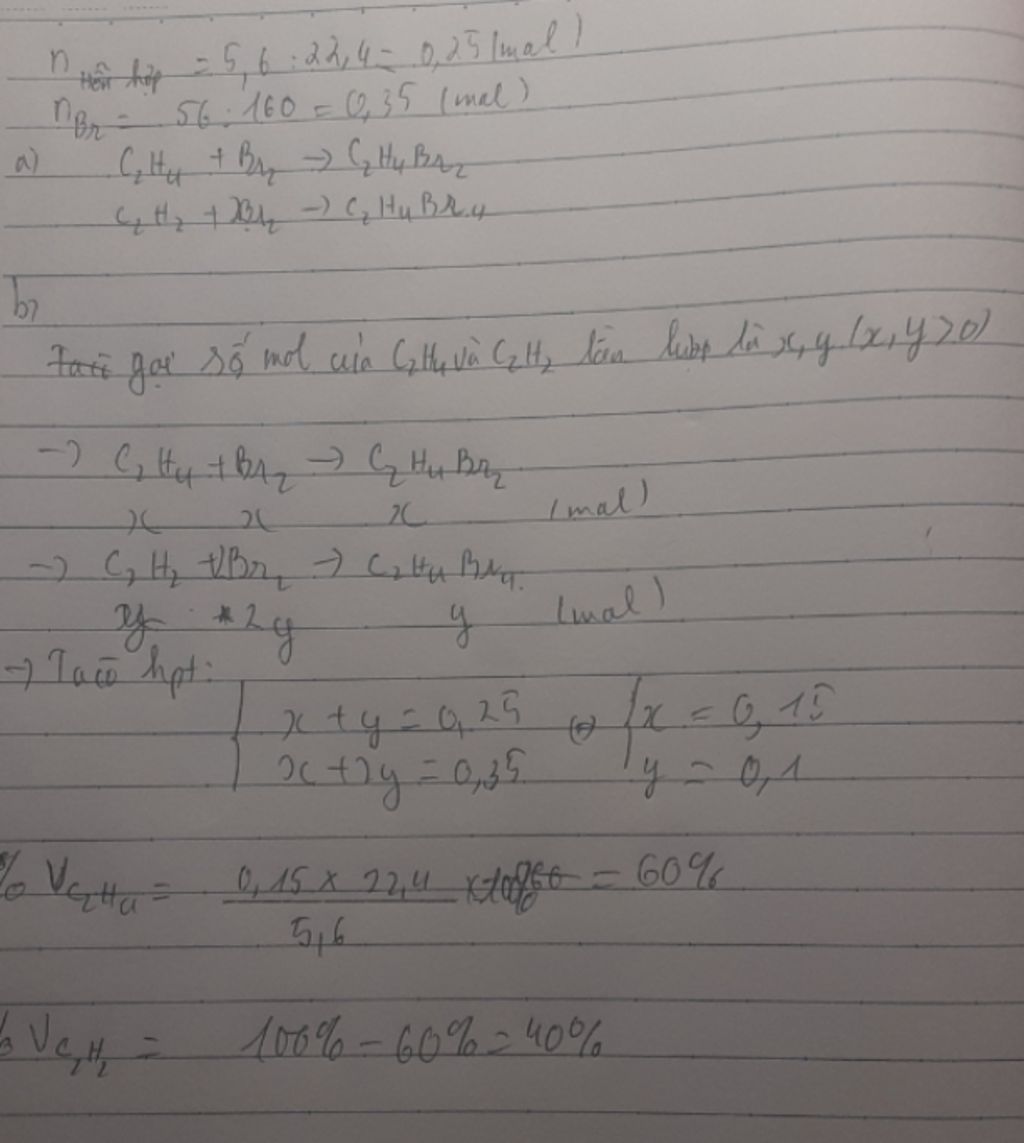 n hỗn hợp = 5,6 : 22,4 = 0,25 (mol)
nBr = 56 : 160 = 0,35 (mol)
a) C₂H₄ + Br₂ → C₂H₄Br₂
C₂H₂ + 2Br₂ → C₂H₄Br₄
b)
gọi số mol của C₂H₄ và C₂H₂ lần lượt là x, y (x, y > 0)
→ C₂H₄ + Br₂ → C₂H₄Br₂
x x x (mol)
→ C₂H₂ + 2Br₂ → C₂H₄Br₄
y 2y y (mol)
→ Ta có hpt:
x + y = 0,25 ⇔ x = 0,15
x + 2y = 0,35 y = 0,1
% V C₂H₄ = 0,15 x 22,4 x 100% = 60%
5,6
% V C₂H₂ = 100% - 60% = 40%